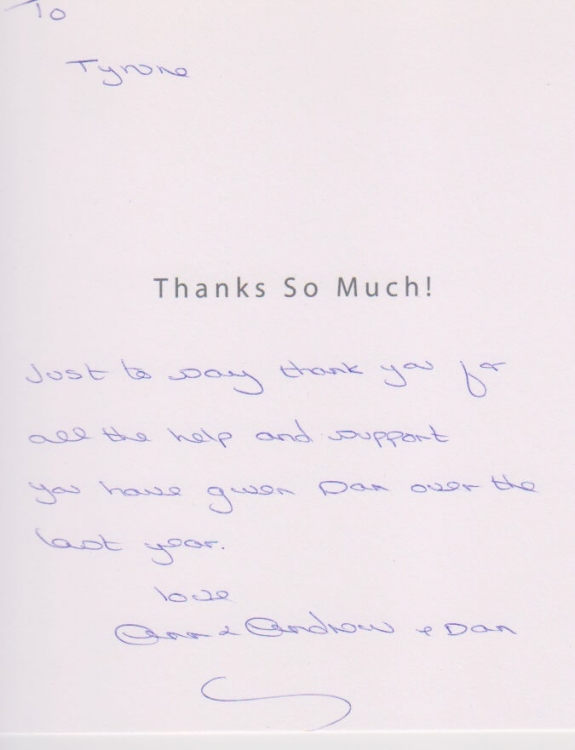 To
Tyrone
Thanks So Much!
Just to say thank you for
all the help and support
you have given Dan over the
last year.
love
Ann & Andrew & Dan